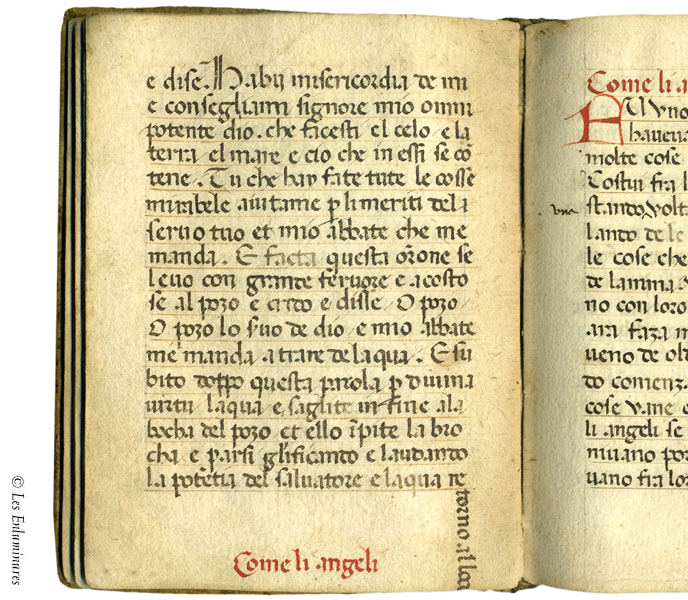 e dise. Habii misericordia de mi
e consegliami signore mio omni
potente dio. che facesti el celo e la
terra el mare e cio che in essi se cō
tene. Tu che hay fate tute le cosse
mirabele aiutame p̱ li meriti de li
seruo tuo et mio abbate che me
manda. E facta questa or̄one se
leuo con grande feruore e acosto
se al pozo e crido e disse O pozo
O pozo lo s̄uo de dio e mio abbate
me manda a trare de laqua. E su
bito doppo questa parola p̱ diuina
uirtu laqua e saglite in fine ala
bocha del pozo et ello īpite la bro
cha e parsi gl̄ificando e laudando
la potētia del saluatore e laqua re
torno al loco
Come li angeli
Come li a
Uno
haueua
molte cose
Costui fra l
stando volt
una
lando de le
le cose che
de lamma
no con loro
ara faza
ueno de ol
do comenz
cose vane e
li angeli se
niuano por
uano fra lor
© Les Enluminures